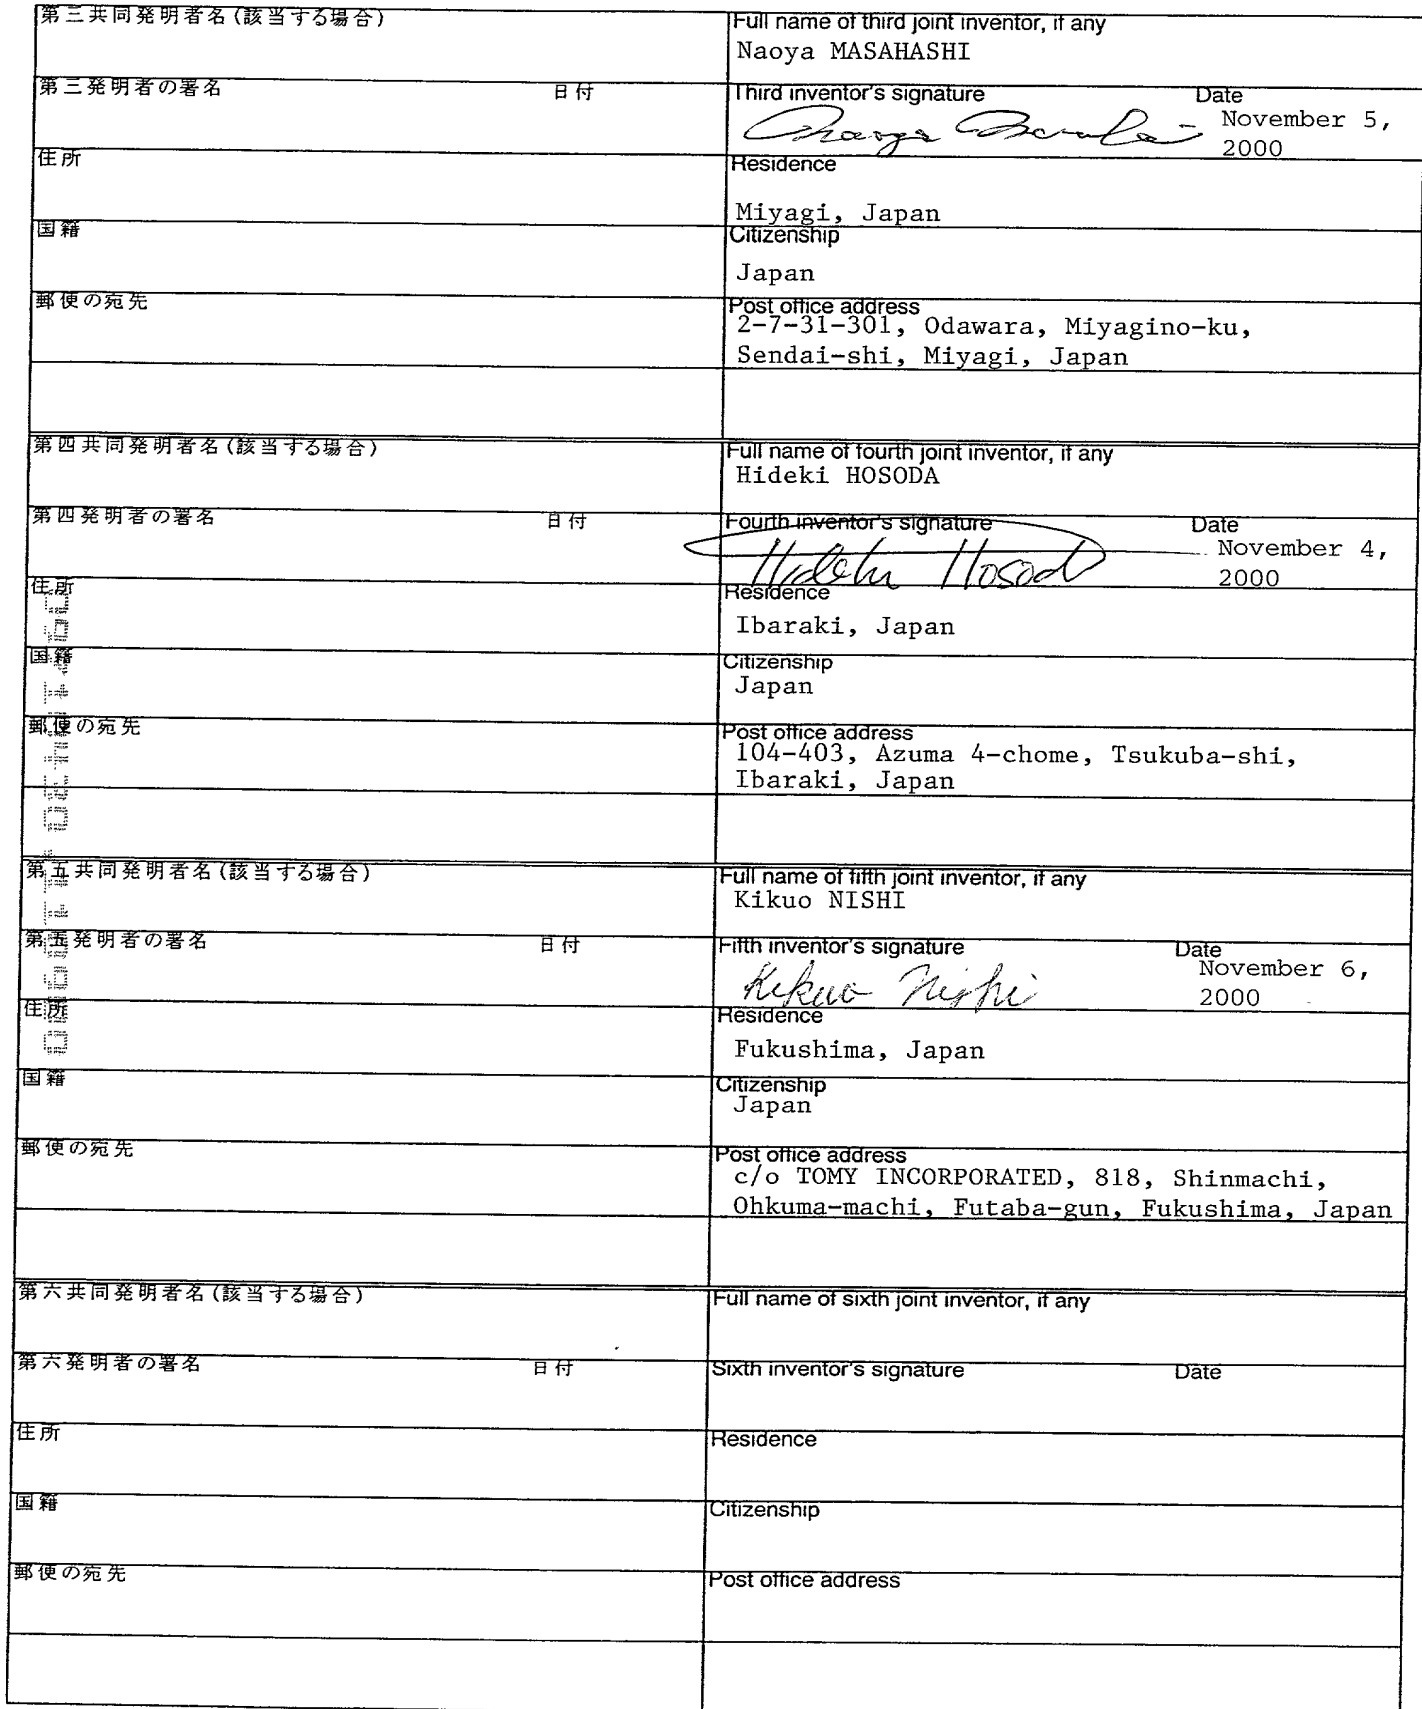 第三共同発明者名(該当する場合)
Full name of third joint inventor, if any
Naoya MASAHASHI
第三発明者の署名 日付
Third inventor's signature Date
November 5,
2000
住所
Residence
Miyagi, Japan
国籍
Citizenship
Japan
郵便の宛先
Post office address
2-7-31-301, Odawara, Miyagino-ku,
Sendai-shi, Miyagi, Japan
第四共同発明者名(該当する場合)
Full name of fourth joint inventor, if any
Hideki HOSODA
第四発明者の署名 日付
Fourth inventor's signature Date
Hideki Hosoda
November 4,
2000
住所
Residence
Ibaraki, Japan
国籍
Citizenship
Japan
郵便の宛先
Post office address
104-403, Azuma 4-chome, Tsukuba-shi,
Ibaraki, Japan
第五共同発明者名(該当する場合)
Full name of fifth joint inventor, if any
Kikuo NISHI
第五発明者の署名 日付
Fifth inventor's signature Date
Kikuo Nishi
November 6,
2000
住所
Residence
Fukushima, Japan
国籍
Citizenship
Japan
郵便の宛先
Post office address
c/o TOMY INCORPORATED, 818, Shinmachi,
Ohkuma-machi, Futaba-gun, Fukushima, Japan
第六共同発明者名(該当する場合)
Full name of sixth joint inventor, if any
第六発明者の署名 日付
Sixth inventor's signature Date
住所
Residence
国籍
Citizenship
郵便の宛先
Post office address